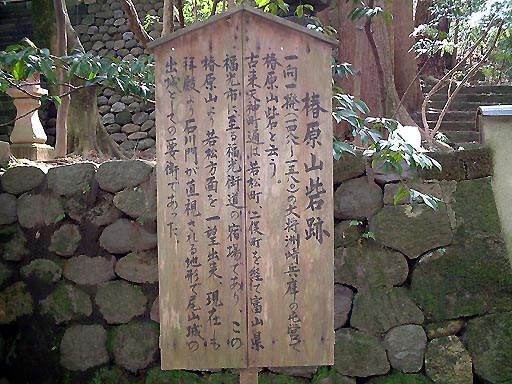 椿原山砦跡
一向一揆(一四八一~一五八〇)の大将洲崎兵庫の屯営で
椿原山砦と云う。
古来天神町通は若松町、二俣町を経て富山県
福光市に至る福光街道の宿場であり、この
椿原山は若松方面を一望出来、現在も
拝殿より石川門が直視される地形で尾山城の
出城としての要衝であった。